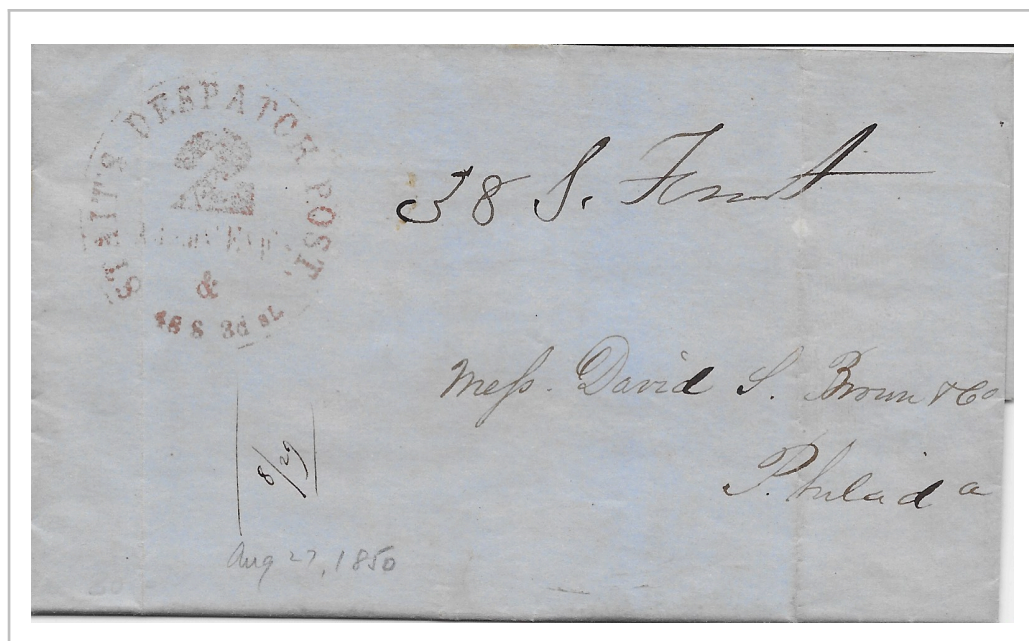 STAIT'S DESPATCH POST.
2
Adams' Exp's
&
46 S 3d st.
38 S. Front
Mess. David S. Brown & Co
Philada
8/29
Aug 27, 1850